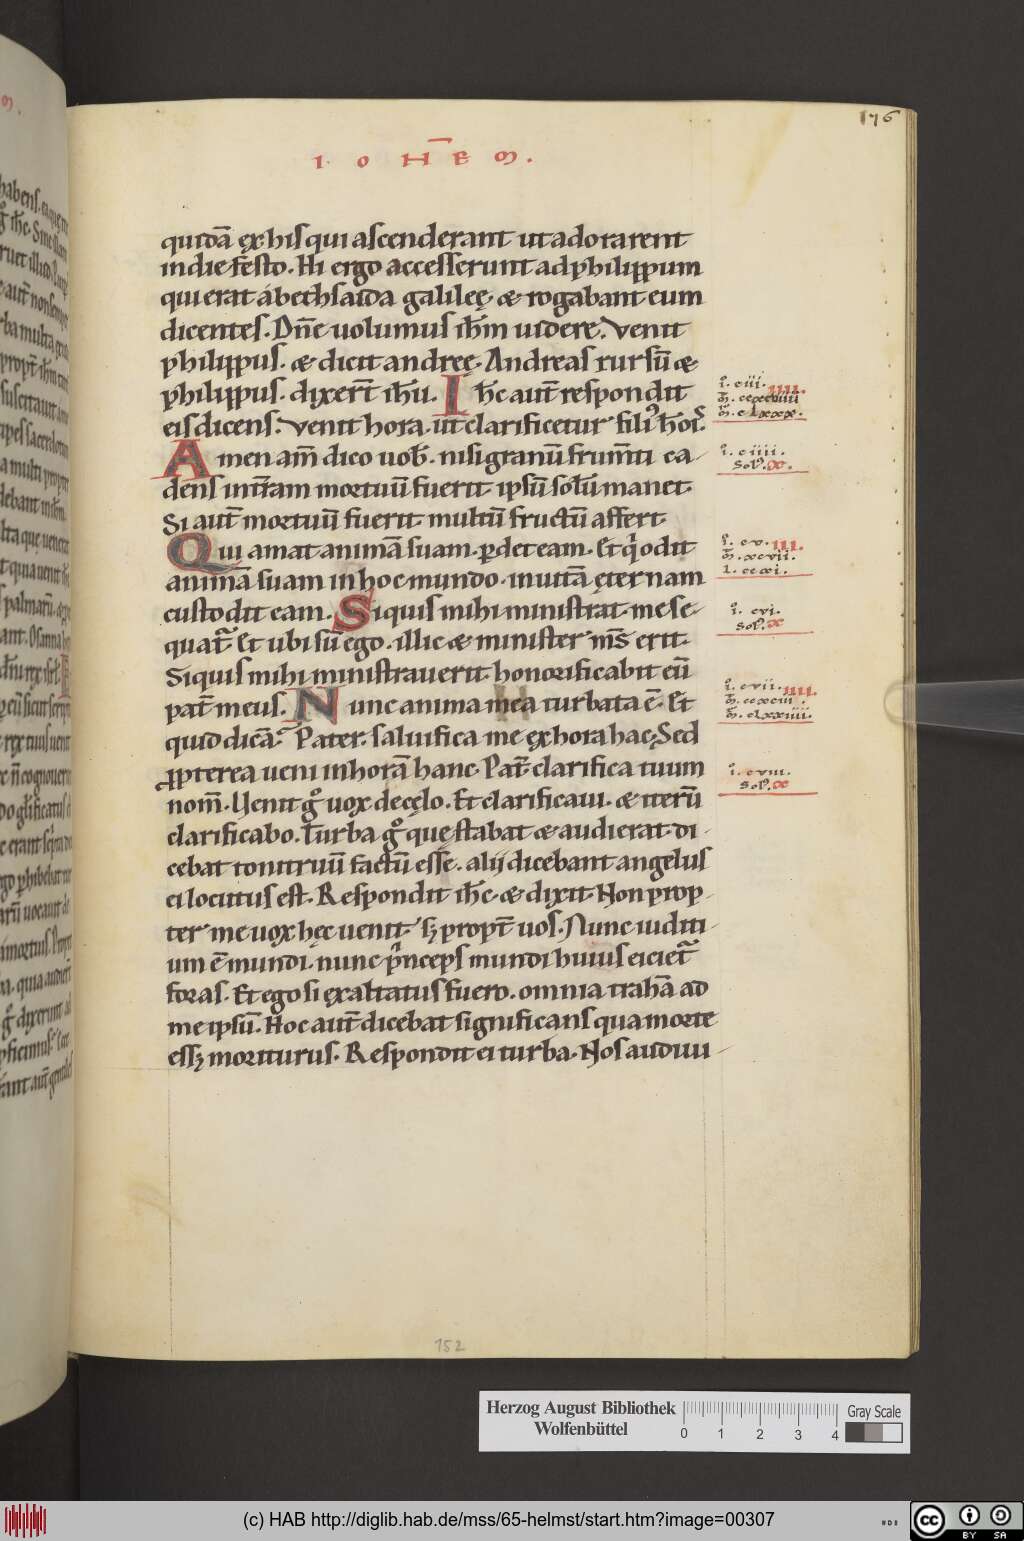 176
I O H̄ E M.
quidā ex his qui ascenderant ut adorarent
in die festo. Hi ergo accesserunt ad philippum
qui erat a bethsaida galileę. & rogabant eum
dicentes. Dn̄e uolumus ih̄m uidere. Venit
philippus. & dicit andreę. Andreas rursū &
philippus. dixert̄ ih̄u. Ih̄c aut̄ respondit
eis dicens. Venit hora. ut clarificetur fili⁹ ho͞is.
Amen am̄ dico uob̄. nisi granū frum̄ti ca-
dens in t̄ram mortuū fuerit. ipsū solū manet.
Si aut̄ mortuū fuerit. multū fructū affert.
Qui amat animā suam. ꝑdet eam. Et qͥ odit
animā suam in hoc mundo. in uitā ęternam
custodit eam. Si quis mihi ministrat. me se-
quat᷑. Et ubi sū ego. illic & minister m̄s erit.
Si quis mihi ministrauerit. honorificabit eū
pat̄ meus. Nunc anima mea turbata ē. Et
quid dicā. Pater. saluifica me ex hora hac. Sed
ꝓpterea ueni in horā hanc. Pat̄ clarifica tuum
nom̄. Uenit gͦ uox de cęlo. Et clarificaui. & iterū
clarificabo. Turba gͦ quę stabat & audierat. di-
cebat tonitruū factū esse. alij dicebant angelus
ei locutus est. Respondit ih̄c & dixit. Non prop-
ter me uox hęc uenit. sꝫ propt̄ uos. Nunc iuditi-
um ē mundi. nunc pͥnceps mundi huius eiciet᷑
foras. Et ego si exaltatus fuero. omnia trahā ad
me ipsū. Hoc aut̄ dicebat significans qua morte
essꝫ moriturus. Respondit ei turba. Nos audiui-
i. ciii. IIII.
i. ciiii.
Sol⁹. X.
i. cv. III.
m̄. xcvii.
l. ccxi.
i. cvi.
Sol⁹. X
i. cvii. IIII.
m̄. ccxciii.
m̄. clxxiiii.
i. cviii.
Sol⁹. X
152
Herzog August Bibliothek
Wolfenbüttel
0 1 2 3 4
Gray Scale
(c) HAB http://diglib.hab.de/mss/65-helmst/start.htm?image=00307
cc BY SA